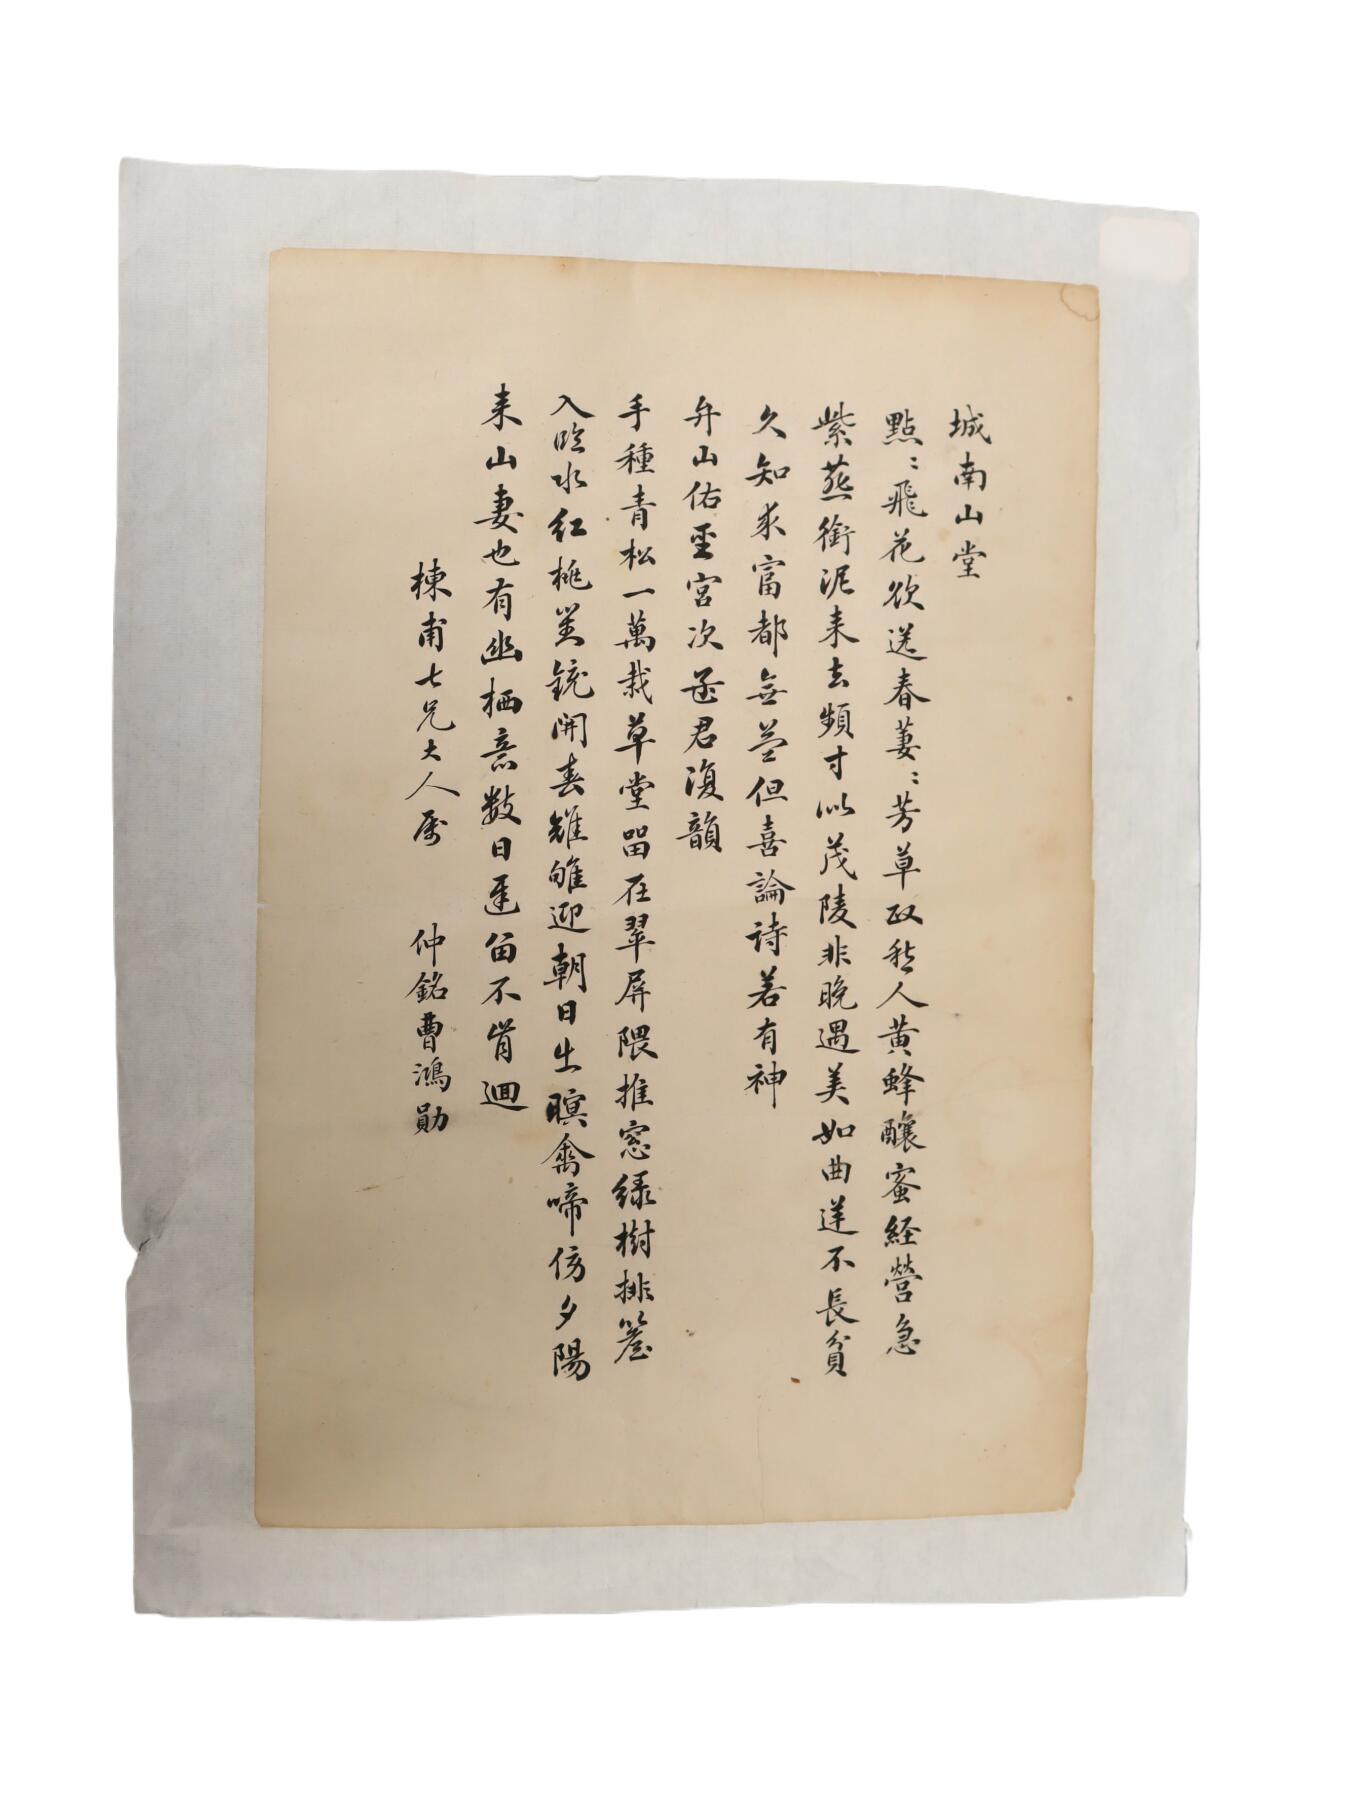 城南山堂
點〻飛花欲送春萋〻芳草政愁人黃蜂釀蜜經營急
紫燕銜泥来去頻寸似茂陵非晚遇美如曲逆不長貧
久知求富都無益但喜論詩若有神
弁山佑聖宮次孟君復韻
手種青松一萬栽草堂留在翠屏隈推窓綠樹排簷
入臨水紅桃芺鏡開春雉雊迎朝日出暝禽啼傍夕陽
来山妻也有幽栖意數日遲留不肯迴
棟甫七兄大人属 仲銘曹鴻勛